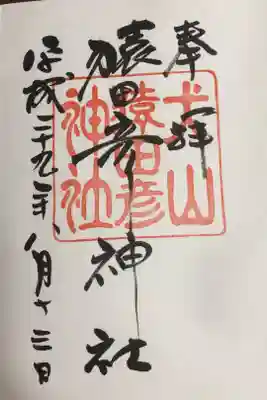 奉拝
猿田彦神社
平成二十九年 月十三日
犬山
猿田彦
神社